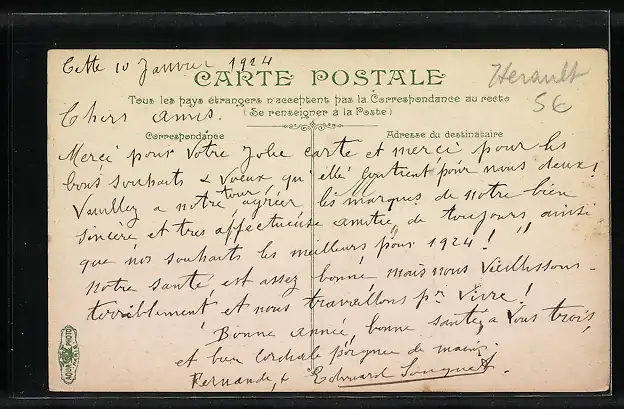 Cette 10 Janvier 1924
CARTE POSTALE
Herault
5€
Tous les pays étrangers n'acceptent pas la Correspondance au recto
(Se renseigner à la Poste)
Chers amis.
Correspondance
Adresse du destinataire
Merçi pour votre Jolie carte et merci pour les
bons souhaits & voeux qu'elle contient pour nous deux!
Veuillez a notre tour, agréer les marques de notre bien
sincère et très affectueuse amitié, de toujours ainsi
que nos souhaits les meilleurs pour 1924!
notre santé est assez bonne mais nous vieillissons
terriblement et nous travaillons pr vivre!
Bonne année, bonne santé, a vous trois,
et bien cordiale poignée de mains.
Fernande, & Edouard